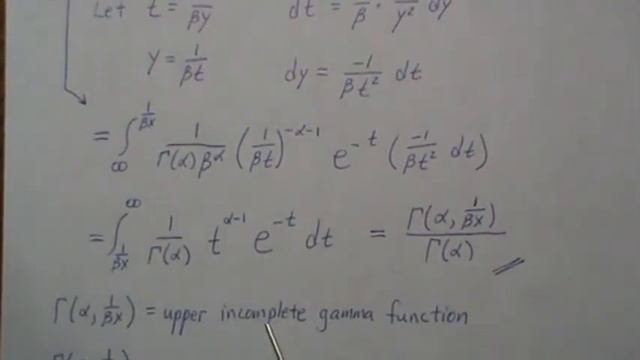 Let t = 1/βy dt = -1/β · 1/y² dy
y = 1/βt dy = -1/βt² dt
= ∫_∞^{1/βx} 1/(Γ(α)β^α) (1/βt)^{-α-1} e^{-t} (-1/βt² dt)
= ∫_{1/βx}^∞ 1/Γ(α) t^{α-1} e^{-t} dt = Γ(α, 1/βx)/Γ(α)
Γ(α, 1/βx) = upper incomplete gamma function